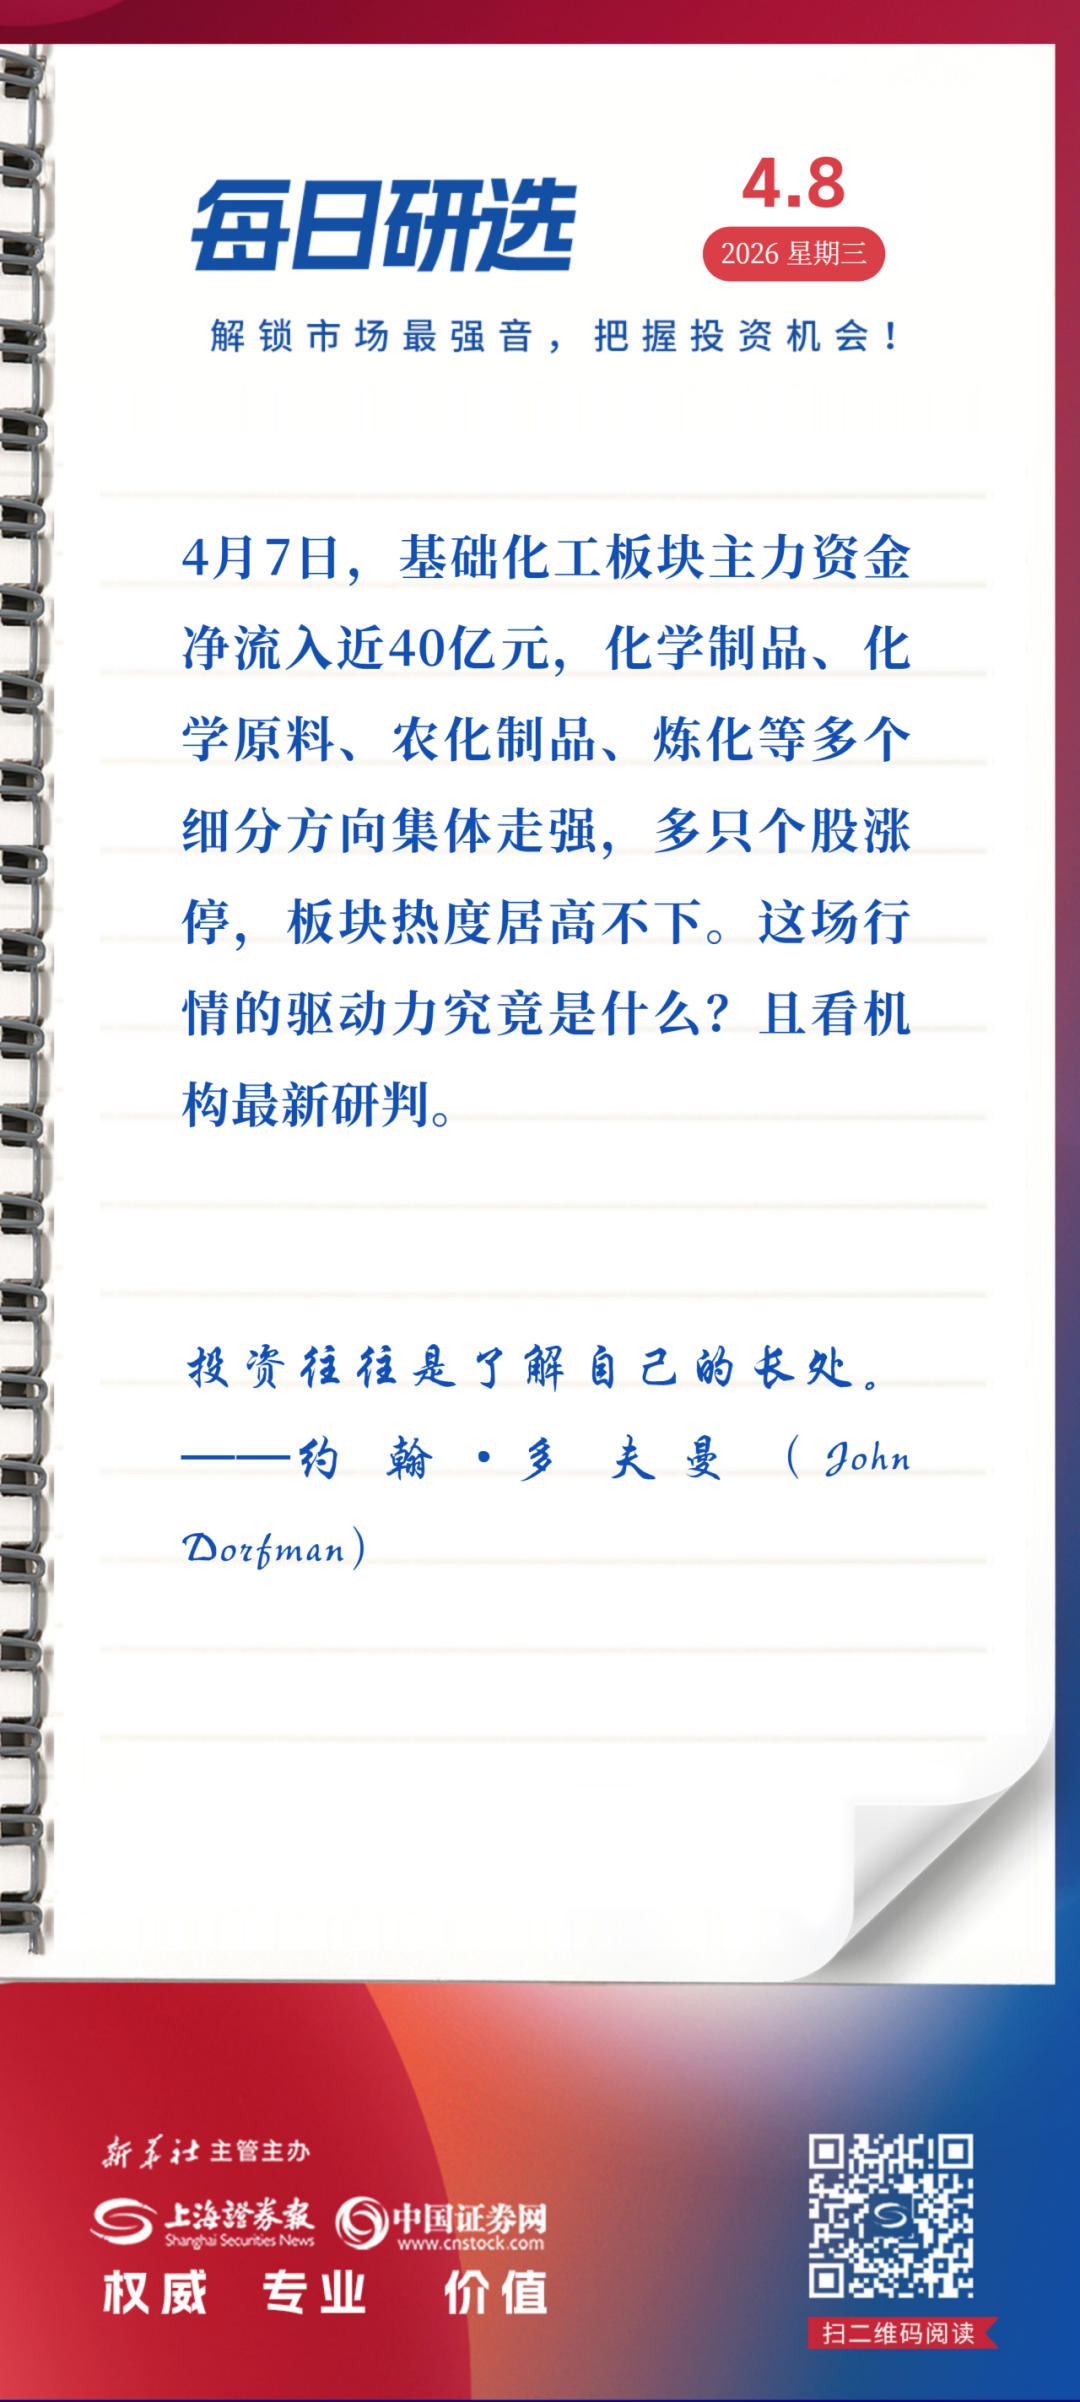 每日研选
4.8
2026 星期三
解锁市场最强音，把握投资机会！
4月7日，基础化工板块主力资金
净流入近40亿元，化学制品、化
学原料、农化制品、炼化等多个
细分方向集体走强，多只个股涨
停，板块热度居高不下。这场行
情的驱动力究竟是什么？且看机
构最新研判。
投资往往是了解自己的长处。
——约翰·多夫曼（John
Dorfman）
新华社 主管主办
上海證券報
Shanghai Securities News
中国证券网
www.cnstock.com
权威 专业 价值
扫二维码阅读